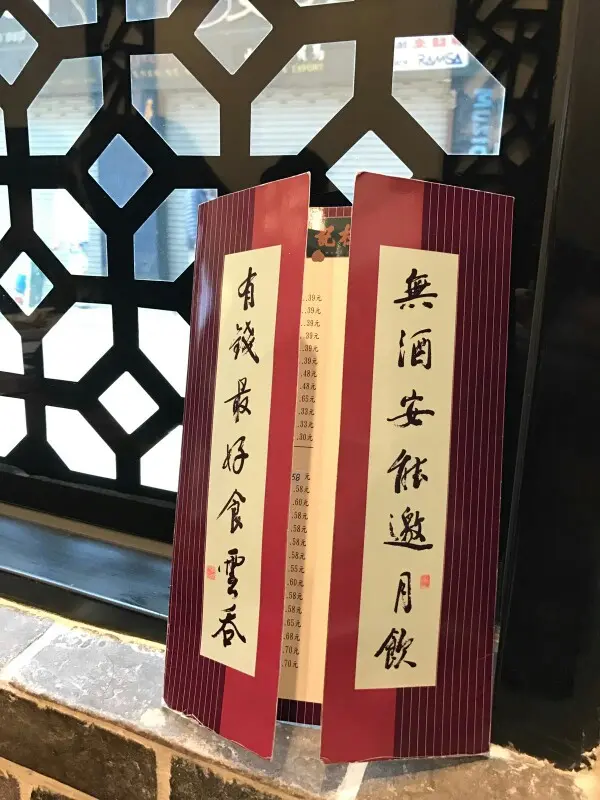 無酒安能邀月飲
有錢最好食雲吞
記
..39元
..39元
..39元
..39元
..39元
..39元
..48元
..48元
..65元
..33元
..33元
..30元
58 元
.58元
.60元
.58元
.58元
.58元
.58元
.55元
.60元
.58元
.58元
.65元
.68元
.70元
.70元
RAMSA